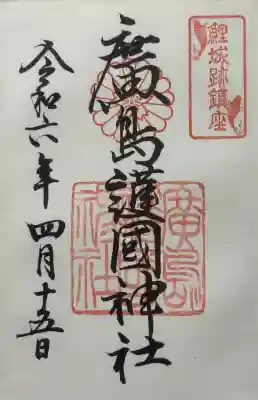 鯉城跡鎮座
廣島護國神社
令和六年 四月十五日
廣島護國神社